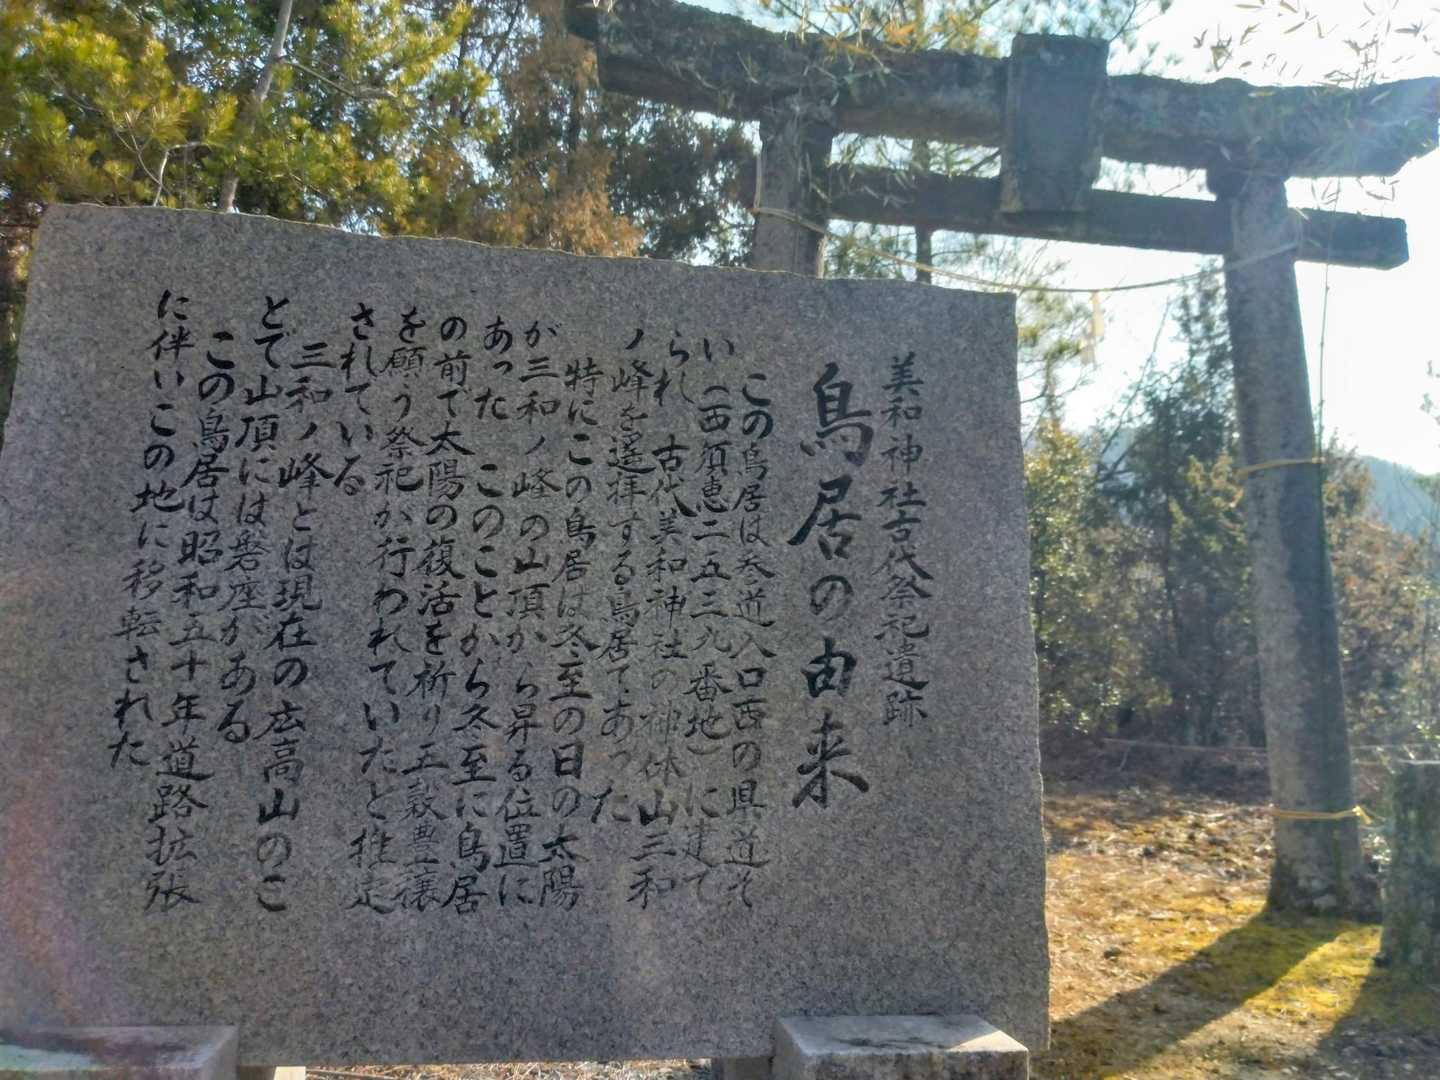 美和神社古代祭祀遺跡
鳥居の由来
この鳥居は参道入口西の県道そ
い(西須恵二五三九番地)に建て
られ 古代美和神社の神体山三和
ノ峰を遥拝する鳥居であった
特にこの鳥居は冬至の日の太陽
が三和ノ峰の山頂から昇る位置に
あった このことから冬至に鳥居
の前で太陽の復活を祈り五穀豊穣
を願う祭祀が行われていたと推定
されている
三和ノ峰とは現在の広高山のこ
とで山頂には磐座がある
この鳥居は昭和五十年道路拡張
に伴いこの地に移転された